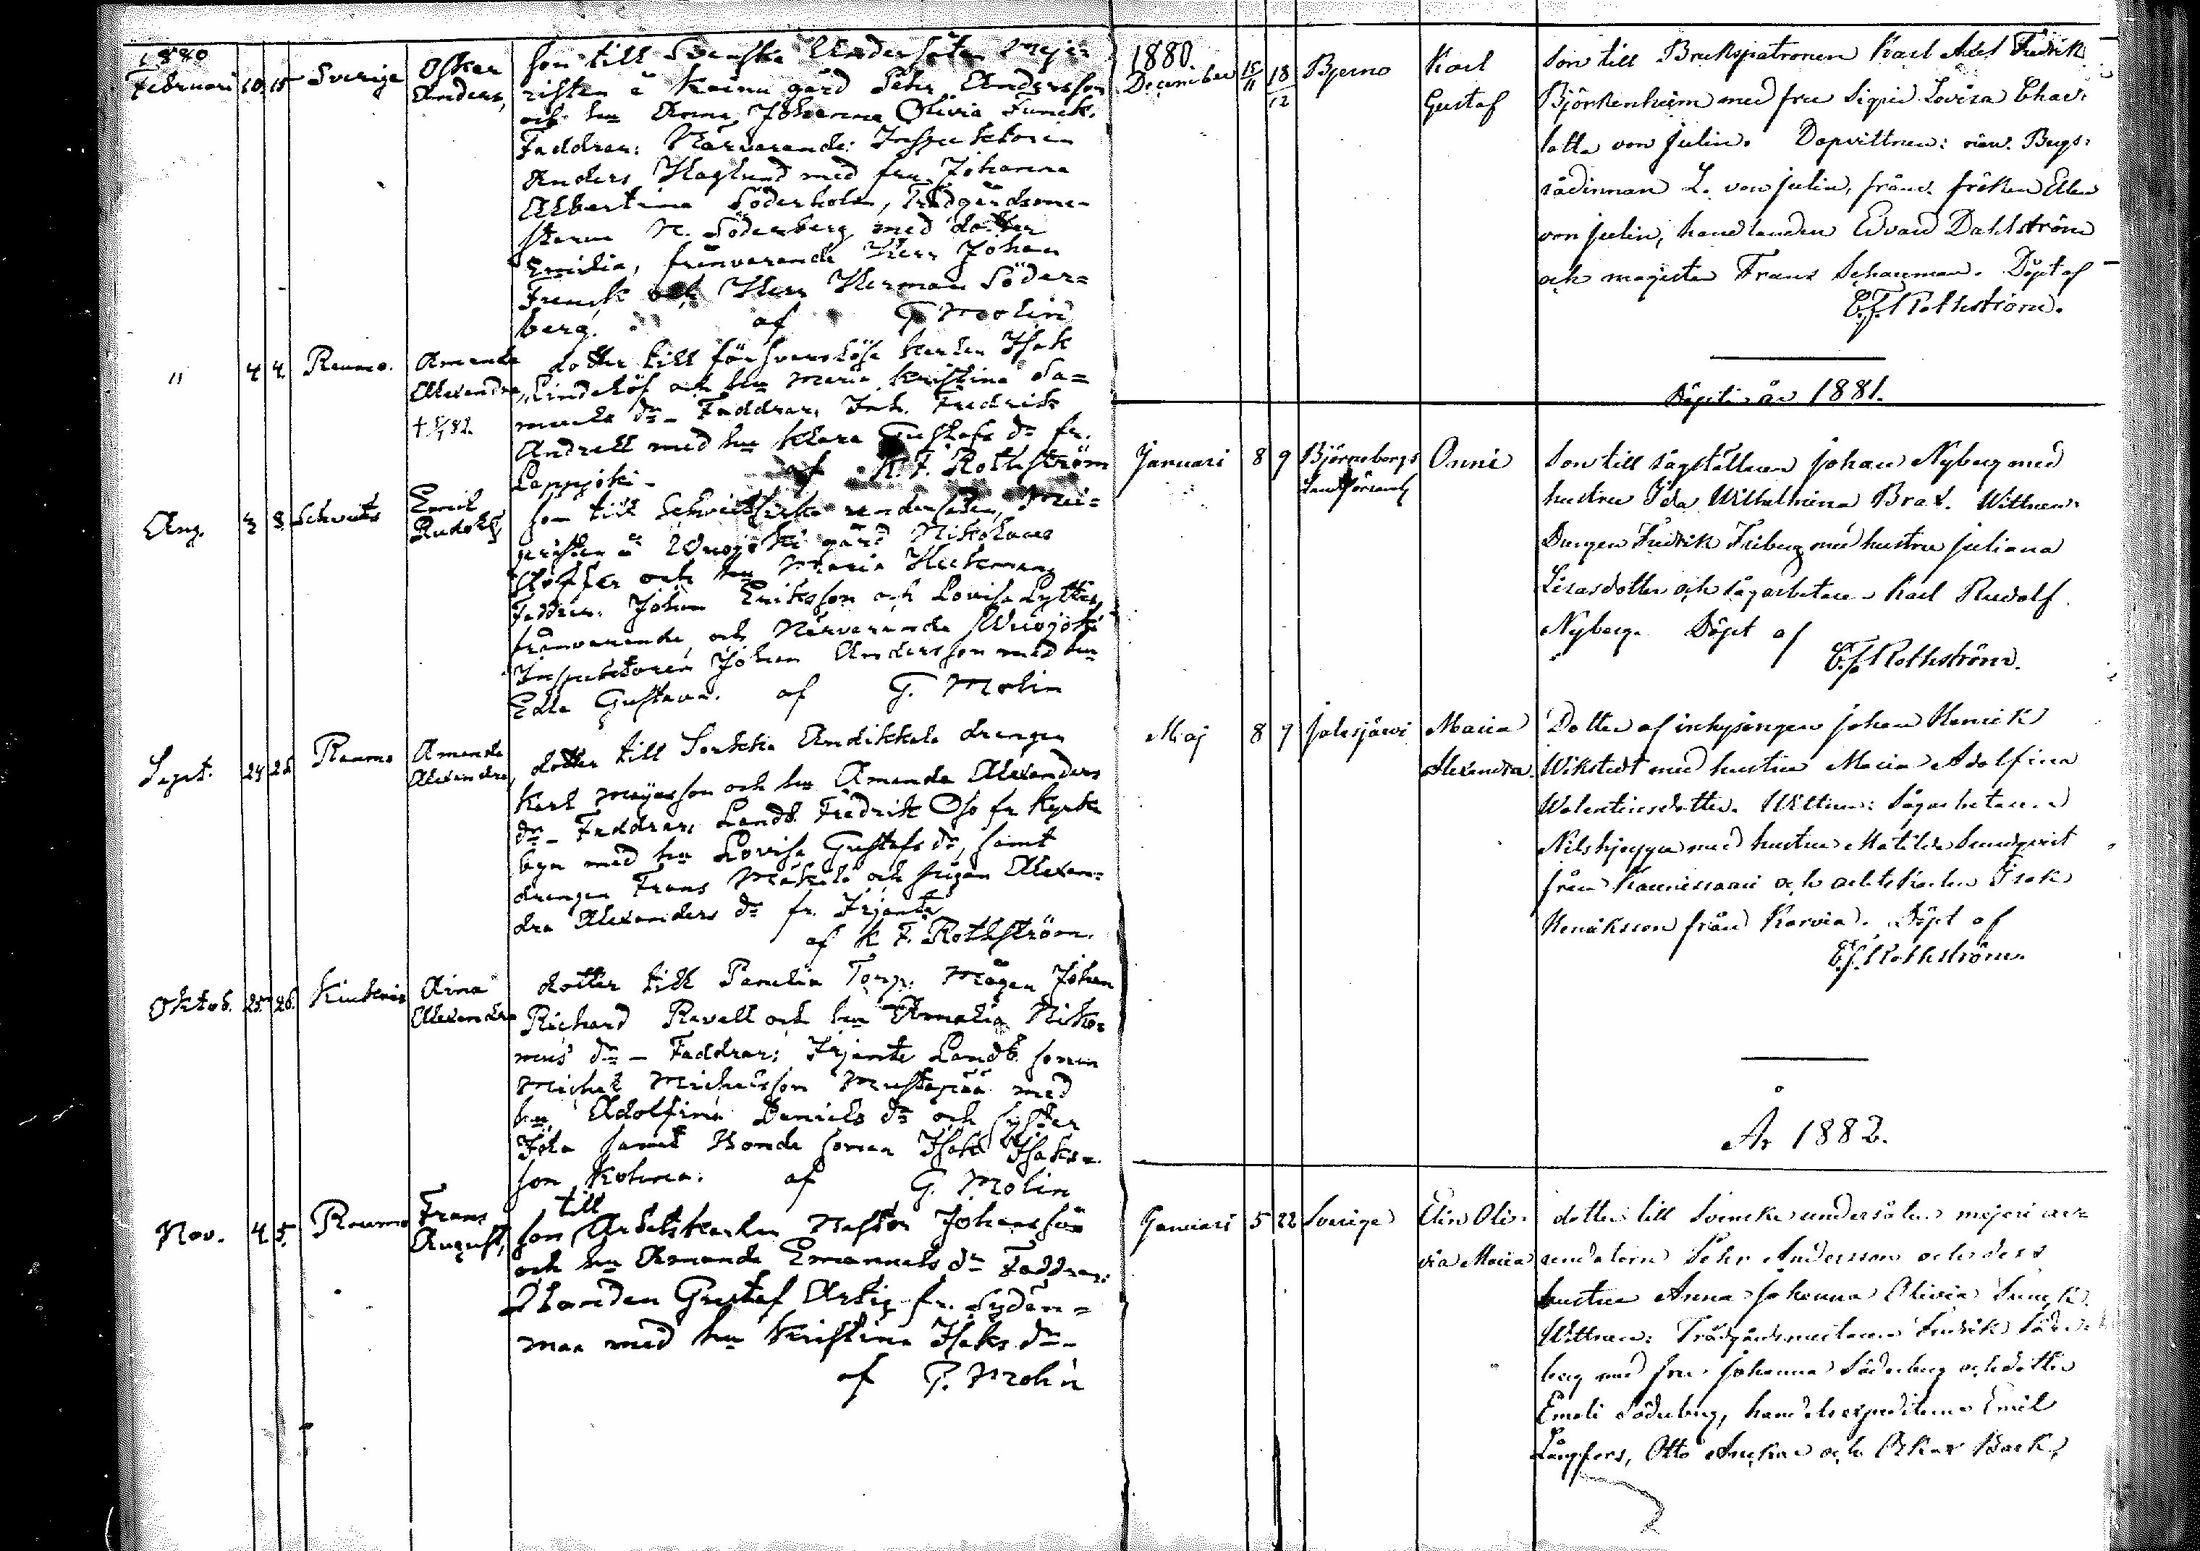 1880
Februari 10 15 Sverige Oskar Anders, son till Svenska Undersåten Meje-
risten å Kainu gård Pehr Andersson
och hu Anna Johanna Olivia Funck.
Faddrar: Närvarande: Inspektoren
Anders Haglund med fru Johanna
Albertina Söderholm, Trädgårdsme-
staren N. Söderberg med dotter
Emilia, frånvarande Herr Johan
Frenck och Herr Herman Söder-
berg. af G Molin
" 4 4. Raumo. Amanda Alexandra, † 82. dotter till försvarslöse karlen Isak
Lindelöf och hu Maria Kristina Sa-
muels dr - Faddrar: Joh. Fredrik
Andrell med hu Klara Gustafs dr fr.
Lappijoki - af K. F. Rothström
Aug. 3 8 Schveits Emil Rudolf son till Schveitsiska undersåten, Mei-
eristen å Wuojoki gård Nikolaus
och hu Maria
Faddrar. Johan Eriksson och Lovisa
frånvarande, och Närvarande Wuojoki
Inspektoren Johan Andersson med hu
Edla Gustava. af G. Molin
Sept. 24 25 Raumo Amanda Alexandra, dotter till Sorkka Andikkala drengen
Karl och hu Amanda Alexanders
dr - Faddrar, Landb. Fredrik Oso fr Kyrko
byn med hu Lovisa Gustafs dr, samt
drengen Frans Mäkilä och pigan Alexan-
dra Alexanders dr fr. Irjanto
af K F. Rothström.
Oktob. 25 26. Kiukais Aina Alexandra dotter till Panelia Torp. Mågen Johan
Richard Revell och hu Amalia Niko-
mus dr - Faddrar: Irjanto Landb. sonen
Michel Michelsson Mustapää med
hu Adolfina Daniels dr och syster
Ida samt Bonde sonen Isak Isaks-
son Kohma. af G. Molin
Nov. 4 5. Raumo Frans August, son till Arbetskarlen Nestor Johansson
och hu Amanda Emanuels dr Faddrar:
Åbonden Gustaf Artig fr. Syden-
maa med hu Kristina Isaks dr -
af G. Molin
1880.
December 15/11 18/12 Bjerno Karl Gustaf Son till Brukspatronen Karl Axel Fredrik
Björkenheim med fru Sigrid Lovisa Char-
lotta von Julin. Dopvittnen: närv. Bergs-
rådinnan L. von Julin, frånv. fröken Ellen
von Julin, handlanden Edvard Dahlström
och magister Frans Schauman. Döpt af
C.F. Rothström.
Döpte år 1881.
Januari 8 9 Björneborgs Landsförsaml Onni Son till sågställaren Johan Nyberg med
hustru Ida Wilhelmina Brax. Wittnen:
Drengen Fredrik Friberg med hustru Juliana
Lisasdotter och sågarbetaren Karl Rudolf
Nyberg. Döpt af
C.F. Rothström.
Maj 8 7 Jalasjärvi Maria Alexandra Dotter af inhysingen Johan Henrik
Wikstedt med hustru Maria Adolfina
Walentinsdotter. Wittnen: Sågarbetaren
med hustru Matilda Sundqvist
från Kaunissaari och arbetskarlen Isak
Henriksson från Karvia. Döpt af
C.F. Rothström.
År 1882.
Januari 5 22 Sverige Elin Oli- via Maria dotter till Svenske undersåten mejeri arr-
endatorn Pehr Andersson och dess
hustru Anna Johanna Olivia Funck.
Wittnen: Trädgårdsmästaren Fredrik Söder-
berg med fru Johanna Söderberg och dotter
Emeli Söderberg, handelsexpediterne Emil
Långfors, Otto och Oskar Back,